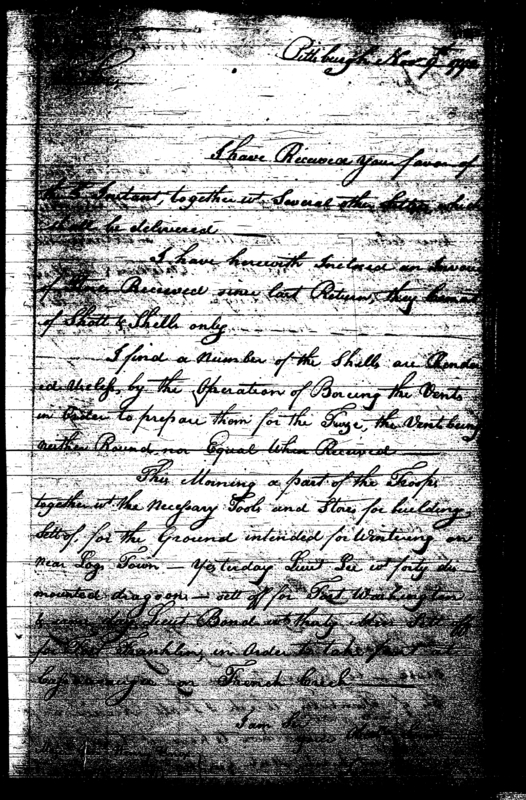 Pittsburgh Nov 9th 1792
I have Received your favor of
Instant, together wt. Several other Letters which
shall be delivered
I have herewith Inclosed an Invoice
of Stores Received since last Return, they Consist
of Shott & Shells only
I find a Number of the Shells are Render
ed Useless, by the Operation of Boreing the Vents
in Order to prepare them for the Fuze, the Vents being
neither Round, nor Equal When Received
This Morning a part of the Troops
together wt. the Necessary Tools and Stores for building,
Sett of, for the Ground intended for Wintering on
Near Logs Town — Yesterday Lieut Lee wt. forty dis
mounted dragoons — sett off for Fort Washington
& same day Lieut Bond wt. thirty Men Sett off
for Fort Franklin, in Order to take post at
on French Creek
I am Sir
your